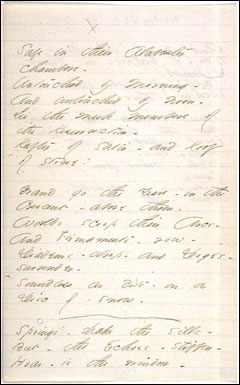 X
Safe in their Alabaster
Chambers -
Untouched by morning -
And untouched by noon -
Lie the meek members of
the Resurrection -
Rafter of Satin - and Roof
of Stone!
Grand go the Years - in the
Crescent - above them -
Worlds scoop their Arcs -
And Firmaments - row -
Diadems - drop - and Doges -
surrender -
Soundless as dots - on a
Disc of snow -
Springs - shake the sills -
But - the Echoes - stiffen -
Hoar - is the window -